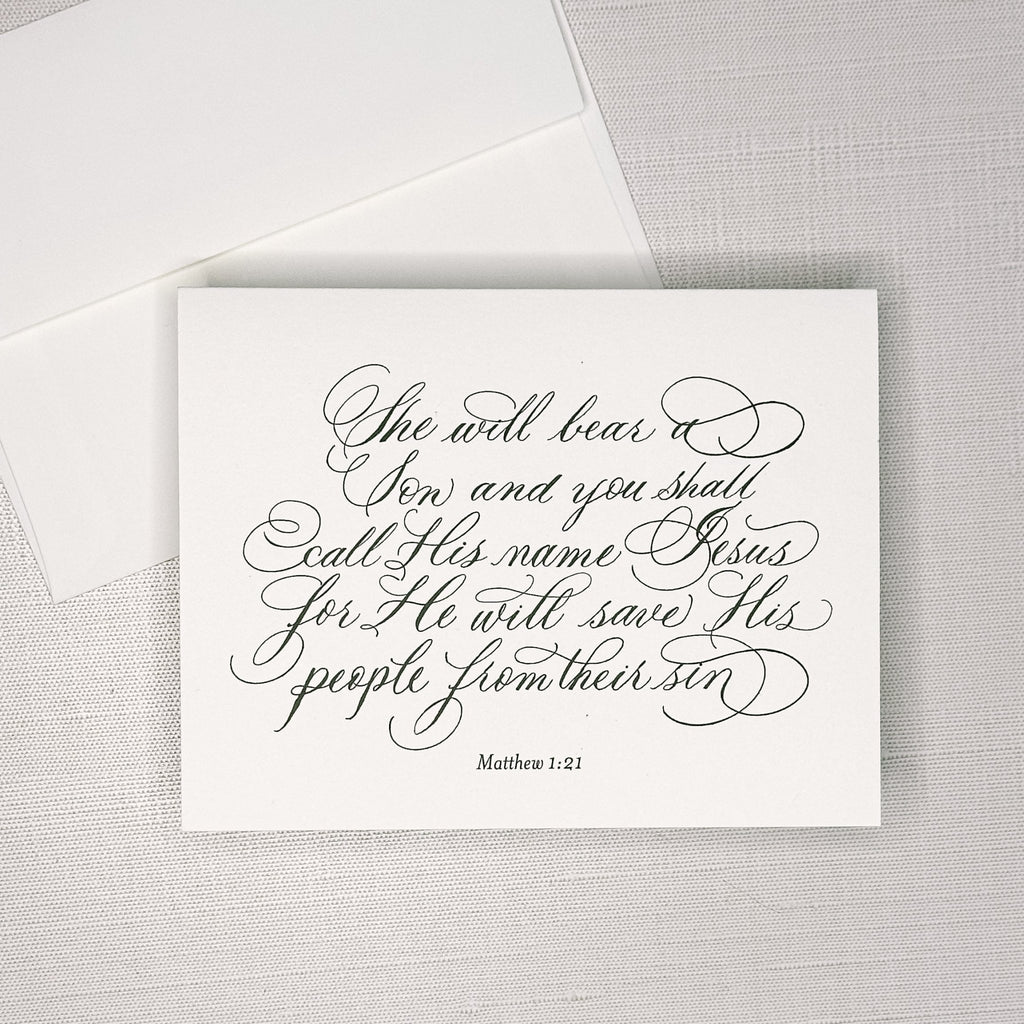 She will bear a
Son and you shall
call His name Jesus
for He will save His
people from their sin
Matthew 1:21